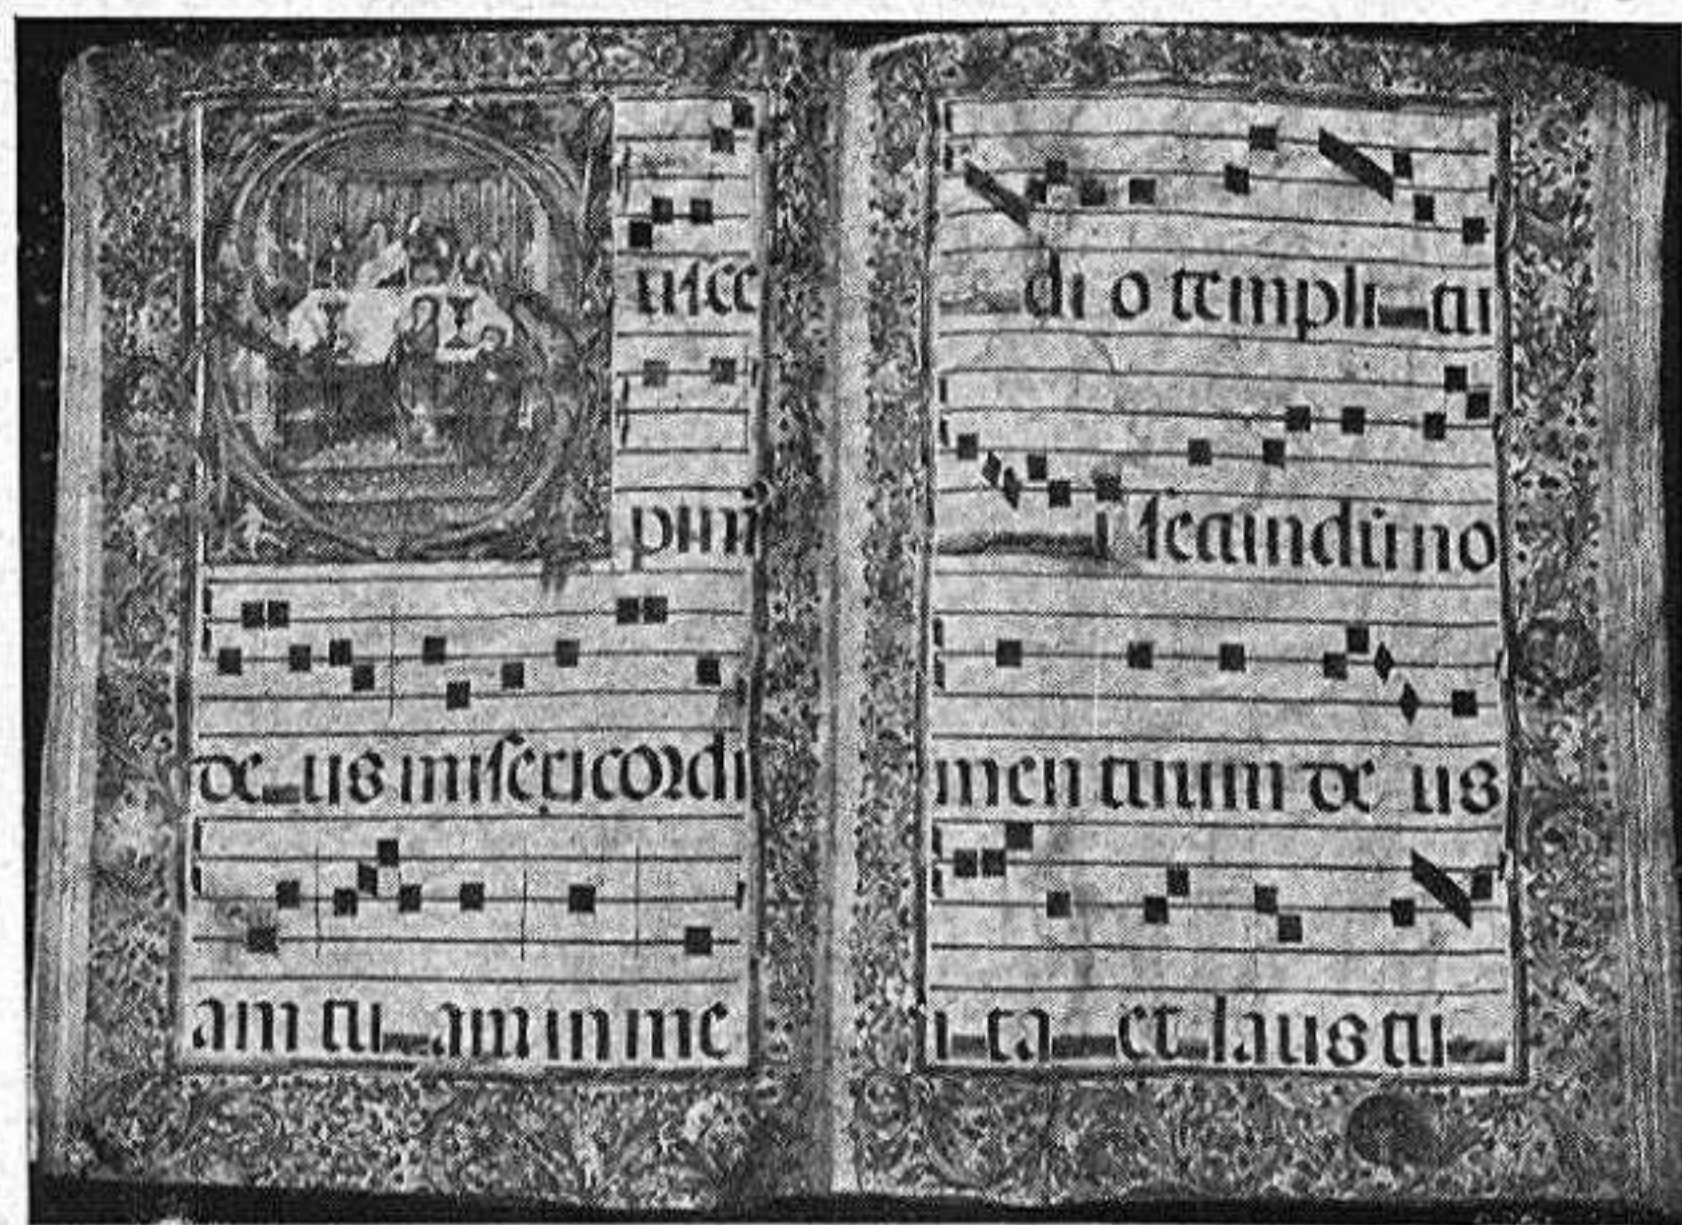 uſce
pim
de us miſericordi
am tu am in me
di o templi tu
i ſecundu no
men tuum de us
i ta et laus tu